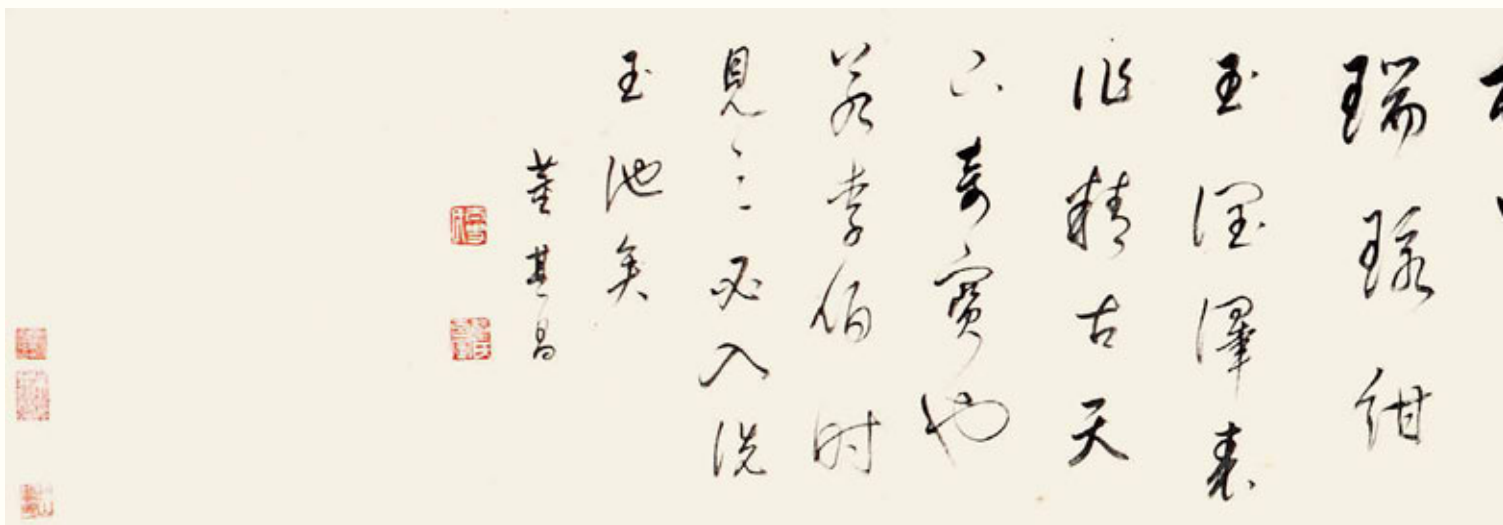 瑞紺
玉澤
作精古天
下奇寶也
若李伯時
見之必入洗
玉池矣
董其昌